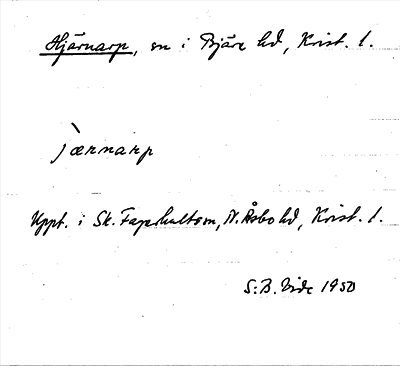 Hjärnarp, sn i Bjäre hd, Krist. l.
jærnarp
Uppt. i Sk. Fagerhults sn, N. Åsbo hd, Krist. l.
S. B. Vide 1950